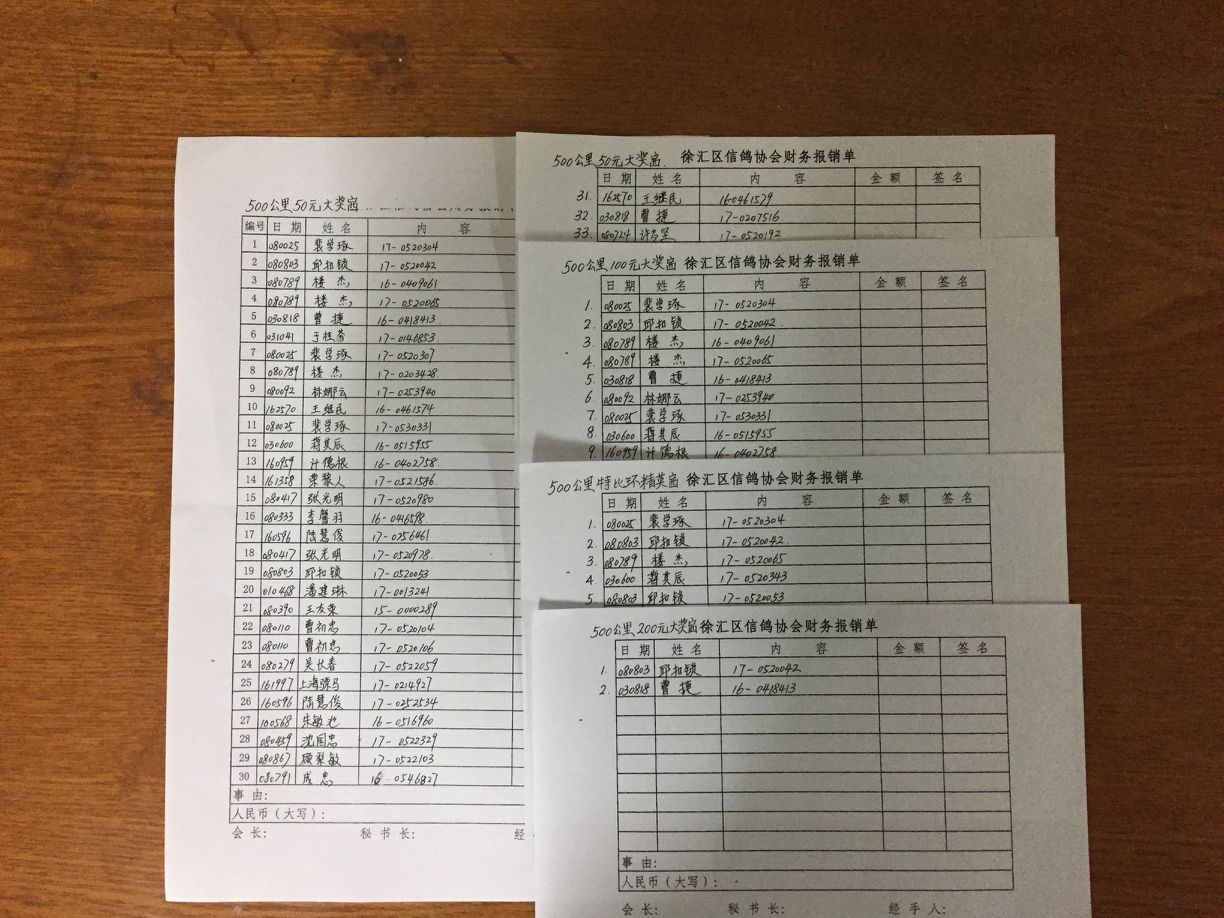 500公里50元大奖窗
编号 日期 姓名 内容
1 080025 裴学琢 17-0520304
2 080803 邱扣锁 17-0520042
3 080789 楼杰 16-0409061
4 080789 楼杰 17-0520065
5 030818 曹捷 16-0418413
6 031041 于桂芬 17-0146853
7 080025 裴学琢 17-0520307
8 080789 楼杰 17-0203428
9 080092 林娜云 17-0253940
10 162570 王继民 16-0461574
11 080025 裴学琢 17-0530331
12 030600 蒋其辰 16-0515955
13 160959 计德根 16-0402758
14 161358 荣黎人 17-0521586
15 080417 张光明 17-0520980
16 080333 李馨羽 16-0416598
17 160596 陆慧俊 17-0256461
18 080417 张光明 17-0520978
19 080803 邱扣锁 17-0520053
20 010468 潘建琳 17-0013241
21 080390 王友荣 15-0000289
22 080110 曹初忠 17-0520104
23 080110 曹初忠 17-0520106
24 080279 吴长春 17-0522059
25 161997 上海骠马 17-0214927
26 160596 陆慧俊 17-0252534
27 100568 朱敏 16-0516960
28 080459 沈国忠 17-0522329
29 080867 顾梨敏 17-0522103
30 080791 成忠 -0546827
事由:
人民币（大写）:
会长: 秘书长: 经
500公里50元大奖窗 徐汇区信鸽协会财务报销单
日期 姓名 内容 金额 签名
31. 162570 王继民 16-0461579
32. 030818 曹捷 17-0207516
33. 080724 许 17-0520192
500公里100元大奖窗 徐汇区信鸽协会财务报销单
日期 姓名 内容 金额 签名
1. 080025 裴学琢 17-0520304
2. 080803 邱扣锁 17-0520042
3. 080789 楼杰 16-0409061
4. 080789 楼杰 17-0520065
5. 030818 曹捷 16-0418413
6. 080092 林娜云 17-0253940
7. 080025 裴学琢 17-0530331
8. 030600 蒋其辰 16-0515955
9. 160959 计德根 16-0402758
500公里特比环精英窗 徐汇区信鸽协会财务报销单
日期 姓名 内容 金额 签名
1. 080025 裴学琢 17-0520304
2. 080803 邱扣锁 17-0520042
3. 080789 楼杰 17-0520065
4 030600 蒋其辰 17-0520343
5. 080803 邱扣锁 17-0520053
500公里200元大奖窗 徐汇区信鸽协会财务报销单
日期 姓名 内容 金额 签名
1. 080803 邱扣锁 17-0520042
2. 030818 曹捷 16-0418413
事由:
人民币（大写）:
会长: 秘书长: 经手人: